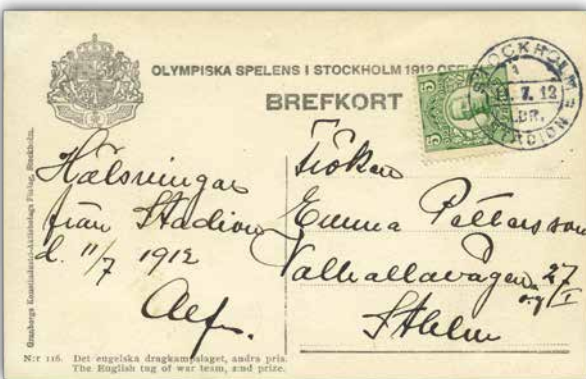 OLYMPISKA SPELENS I STOCKHOLM 1912
BREFKORT
STOCKHOLM
1
11. 7. 12
LBR.
STADION
5
5
Hälsningar
från Stadion
d. 11/7 1912
Fröken
Emma Pettersson
Valhallavägen 27
Sthlm
Granbergs Konstindustri-Aktiebolags Förlag, Stockholm.
N:r 116. Det engelska dragkampslaget, andra pris.
The English tug of war team, 2:nd prize.